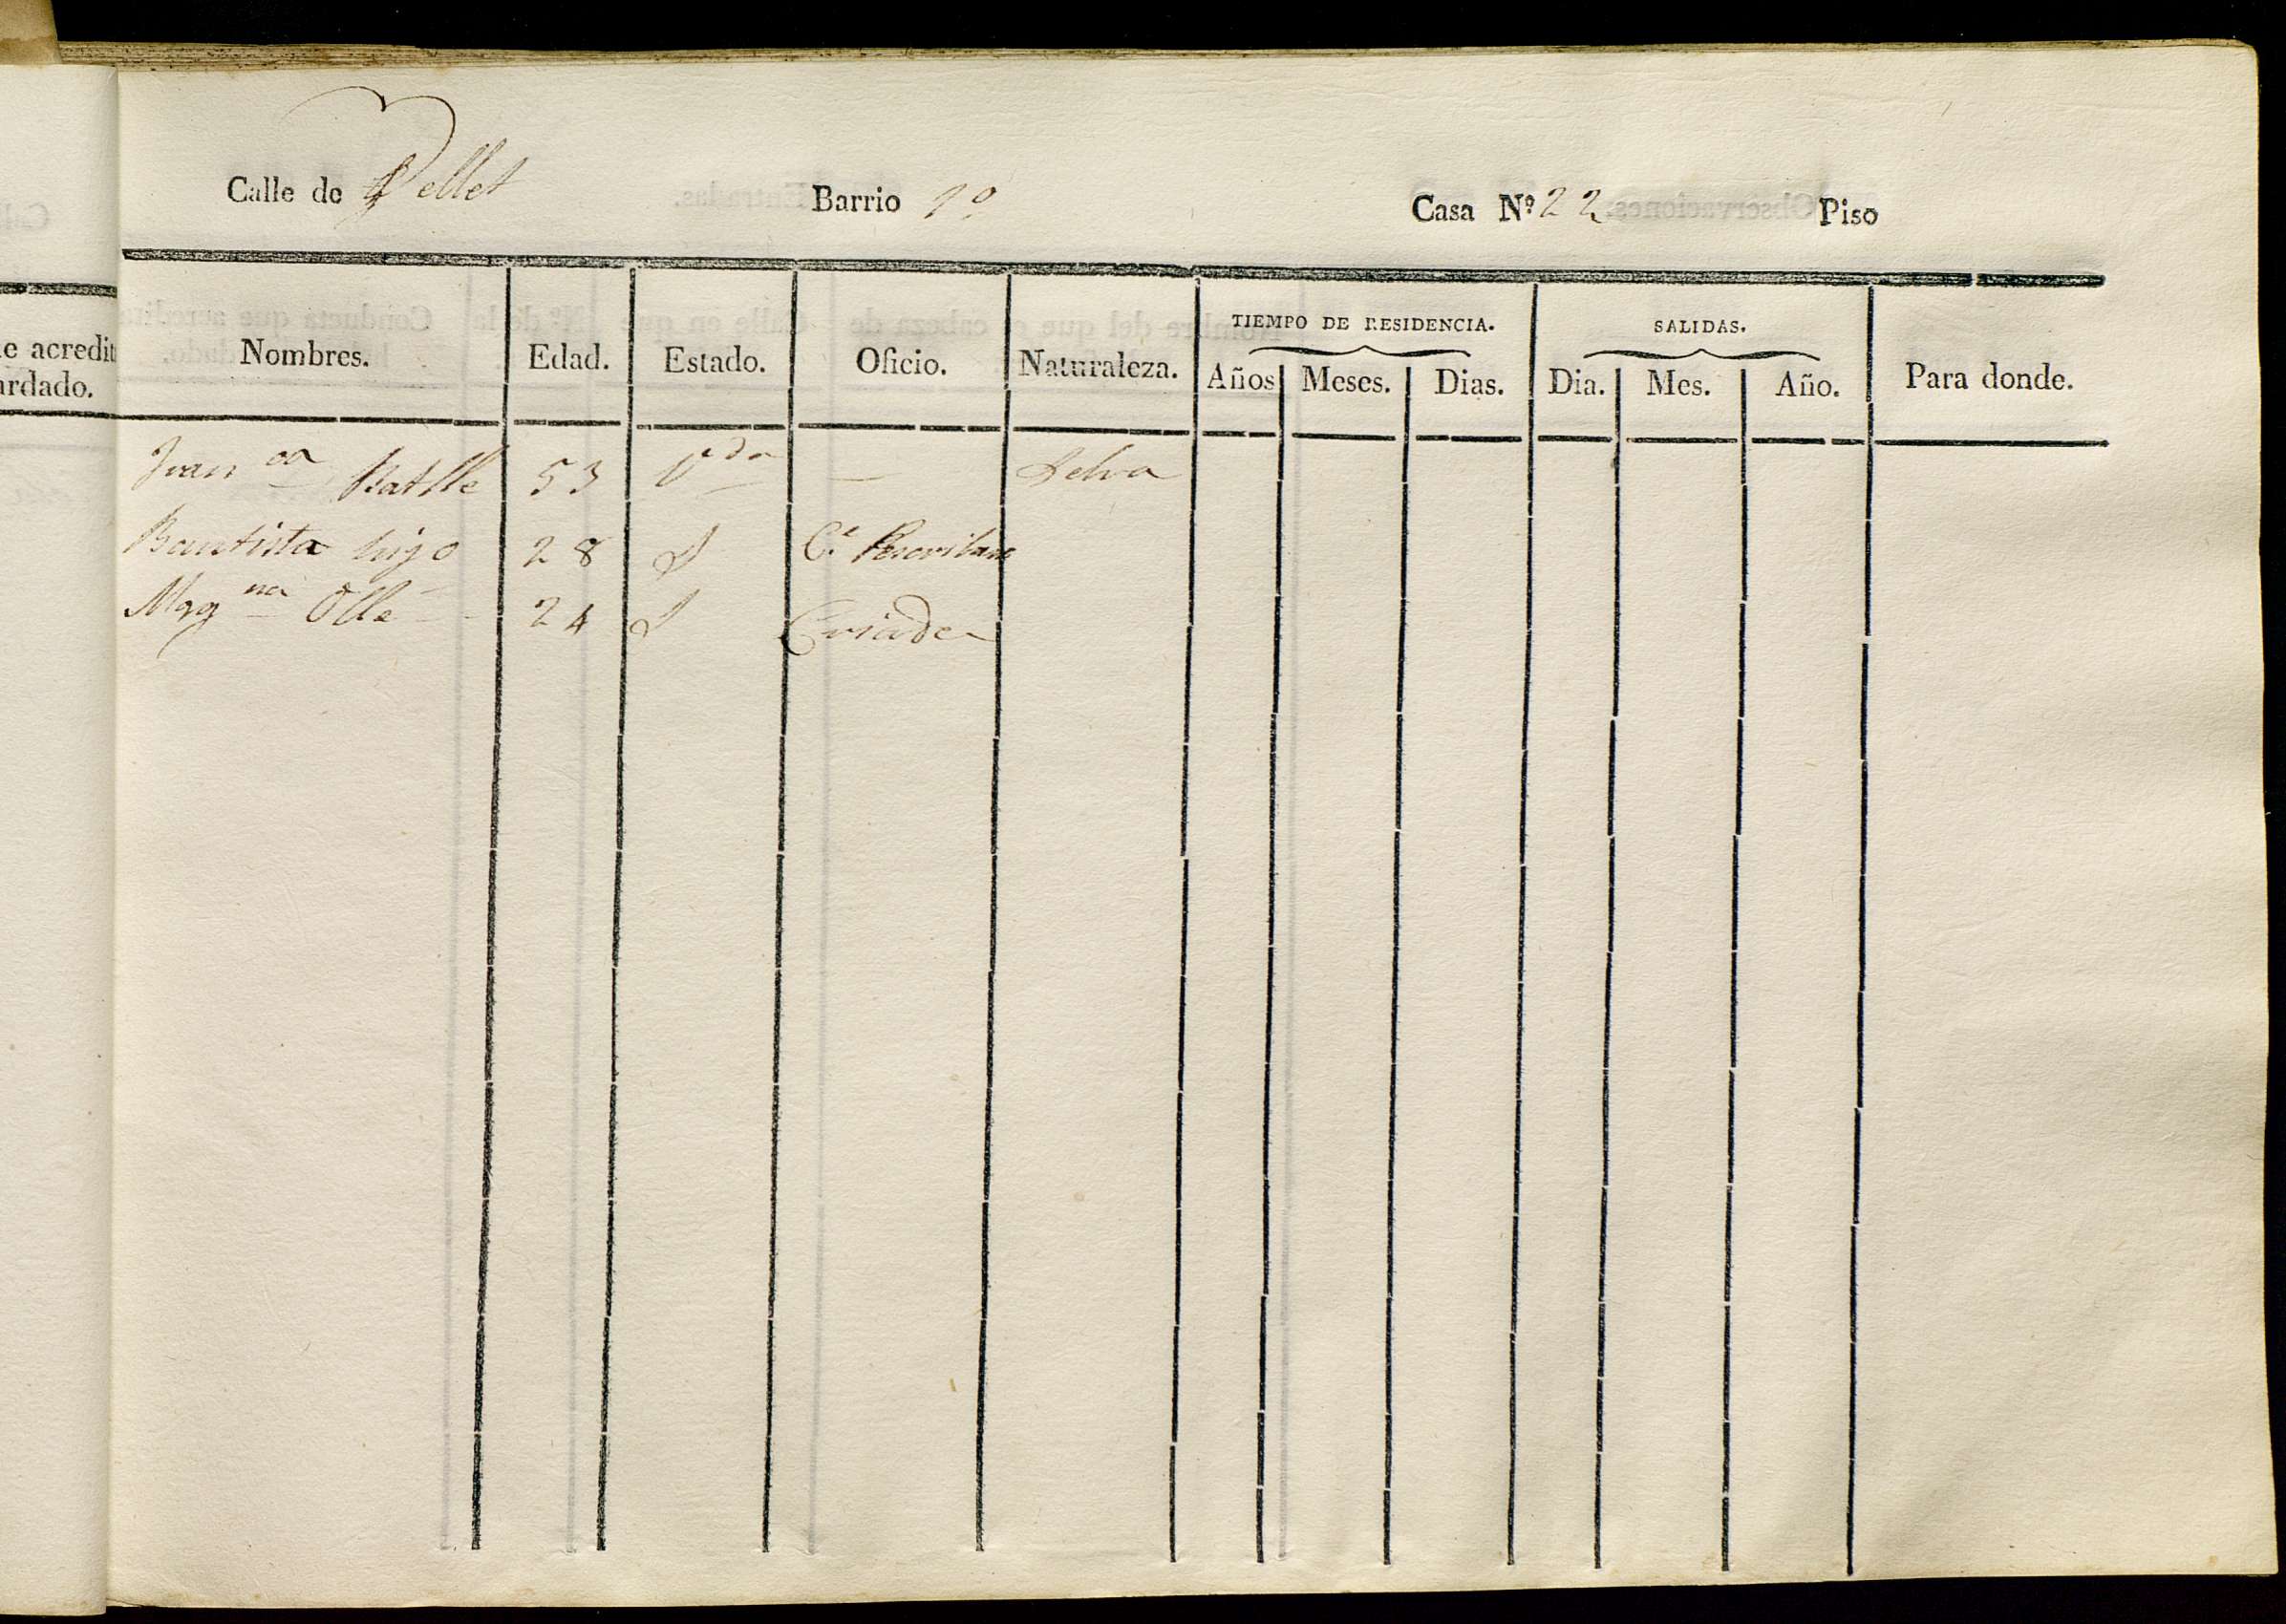 Calle de Vellet Barrio 1º Casa Nº 22 Piso
e acredit
ardado.
TIEMPO DE RESIDENCIA. SALIDAS.
Nombres. Edad. Estado. Oficio. Naturaleza. Años Meses. Dias. Dia. Mes. Año. Para donde.
Fran ca Batlle 53 V da — Selva
Bautista hijo 28 S
Mag na Olle 24 S Criada